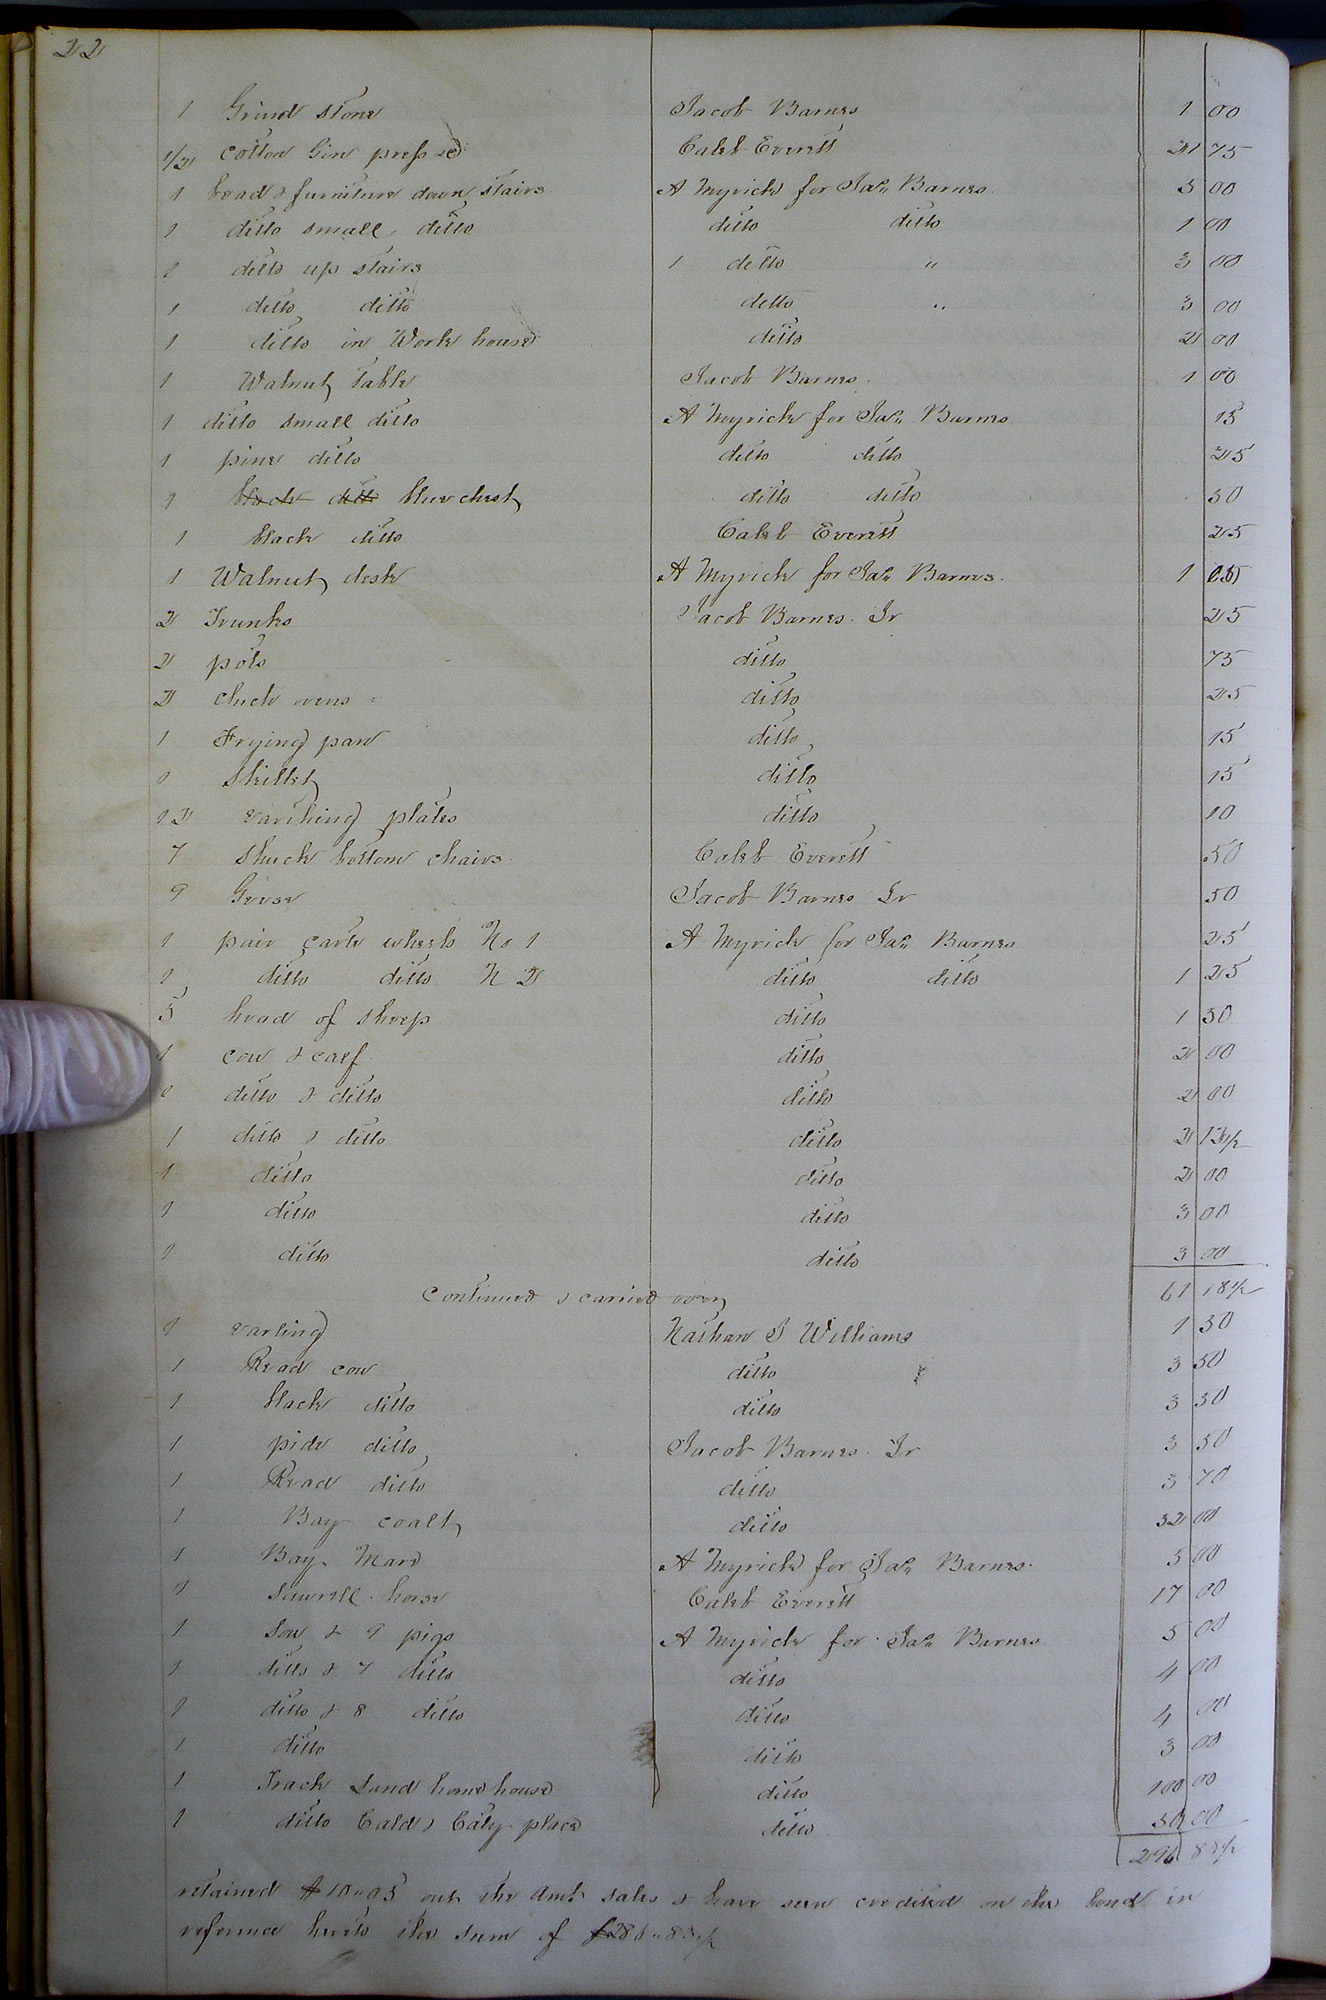 22
1 Grind stone Jacob Barnes 1 00
1/2 cotton Gin press &c Caleb Everett 21 75
1 bead & furniture down stairs A Myrick for Jas. Barnes 5 00
1 ditto small ditto ditto ditto 1 00
1 ditto up stairs 1 ditto " 3 00
1 ditto ditto ditto " 3 00
1 ditto in Work house ditto 2 00
1 Walnut table Jacob Barnes 1 00
1 ditto small ditto A Myrick for Jas. Barnes 15
1 pine ditto ditto ditto 25
1 black ditto blue chest ditto ditto 50
1 black ditto Caleb Everett 25
1 Walnut desk A Myrick for Jas. Barnes 1
2 Trunks Jacob Barnes Jr 25
2 pots ditto 75
2 ovens ditto 25
1 Frying pan ditto 15
1 Skillet ditto 15
12 earthing plates ditto 10
7 Shuck bottom chairs Caleb Everett 50
9 Geese Jacob Barnes Jr 50
1 pair cart wheels No 1 A Myrick for Jas. Barnes 25
1 ditto ditto N 2 ditto ditto 1 25
5 head of sheep ditto 1 50
1 cow & calf ditto 2 00
1 ditto & ditto ditto 2 00
1 ditto & ditto ditto 2 13 1/2
1 ditto ditto 2 00
1 ditto ditto 3 00
1 ditto ditto 3 00
Continued & carried over 61 18 1/2
1 earling Nathan J Williams 1 50
1 Read cow ditto 3 50
1 black ditto ditto 3 50
1 pide ditto Jacob Barnes Jr 3 50
1 Read ditto ditto 3 70
1 Bay coalt ditto 32 00
1 Bay Mare A Myrick for Jas. Barnes 5 00
1 Sawrell horse Caleb Everett 17 00
1 Sow & 9 pigs A Myrick for Jas. Barnes 5 00
1 ditto & 7 ditto ditto 4 00
1 ditto & 8 ditto ditto 4 00
1 ditto ditto 3 00
1 Track Land home house ditto 100 00
1 ditto Cald & Caty place ditto 50 00
296 88 1/2
retained $10"05 out the amt sales & have seen credited on the bond in
reference hereto the sum of $286"83 1/2